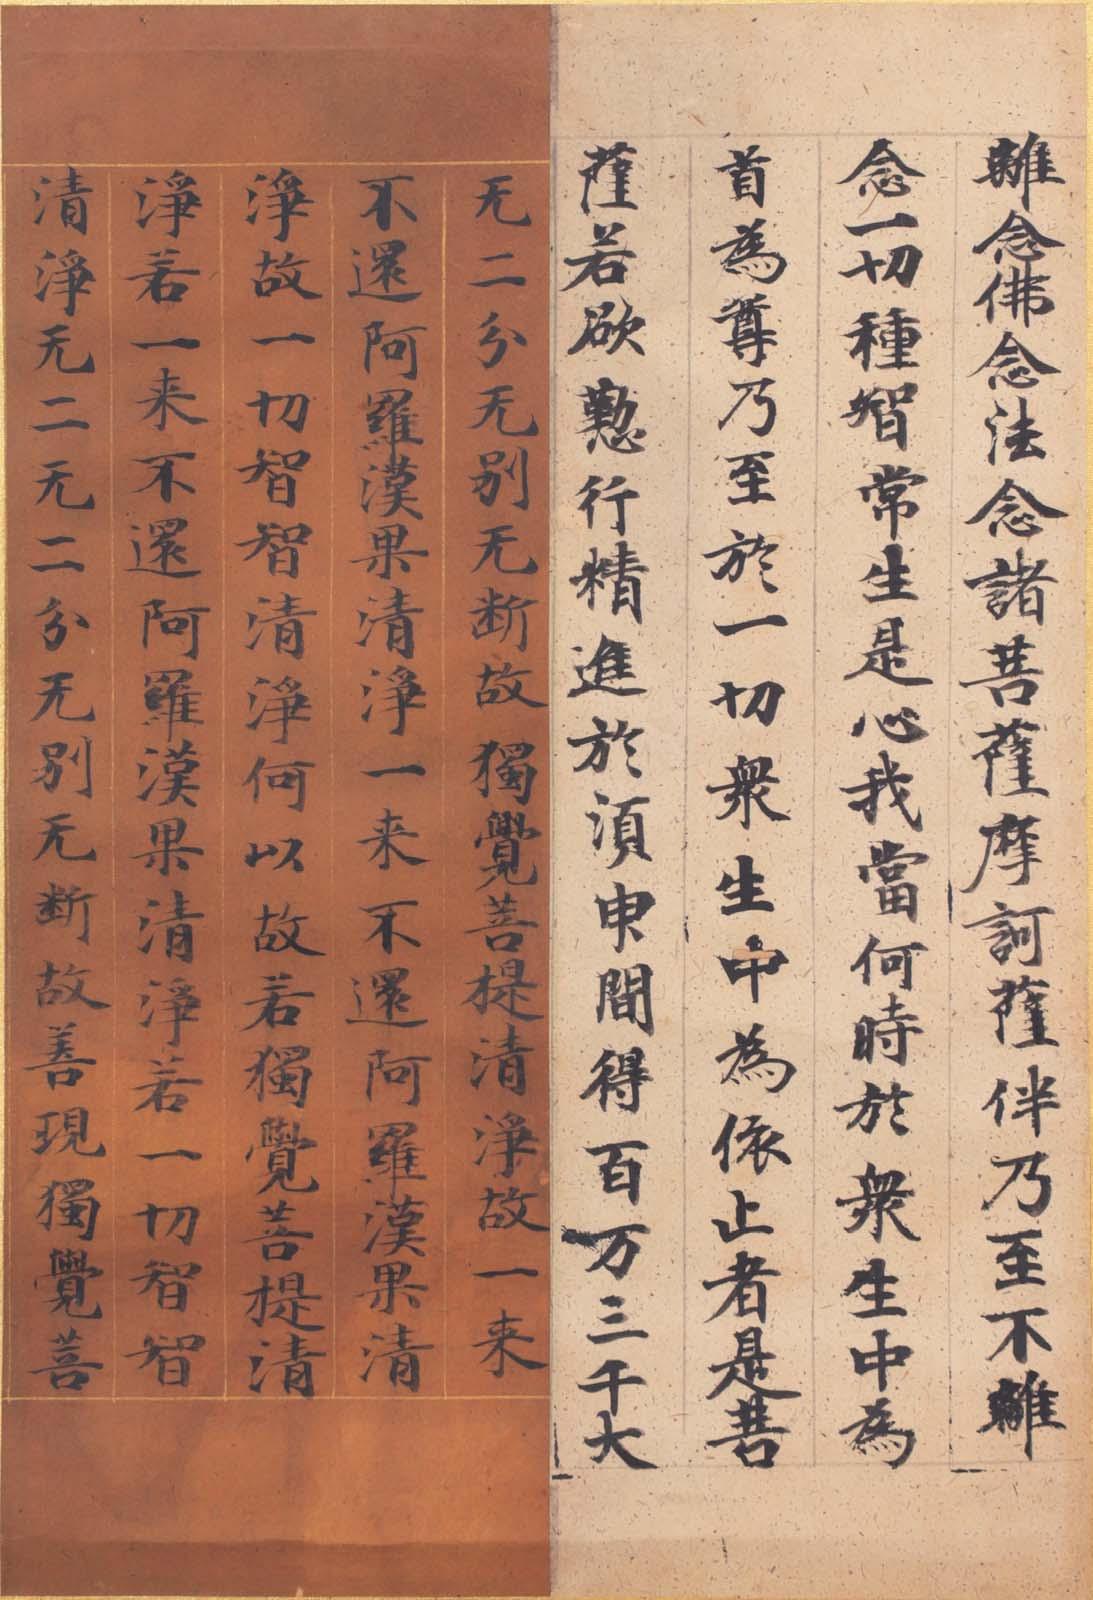 離念佛念法念諸菩薩摩訶薩伴乃至不離
念一切種智常生是心我當何時於衆生中為
首為尊乃至於一切衆生中為依止者是菩
薩若欲懃行精進於湏申間得百万三千大
无二分无别无断故獨覺菩提清淨故一来
不還阿羅漢果清淨一来不還阿羅漢果清
淨故一切智智清淨何以故若獨覺菩提清
淨若一来不還阿羅漢果清淨若一切智智
清淨无二无二分无别无断故善現獨覺菩